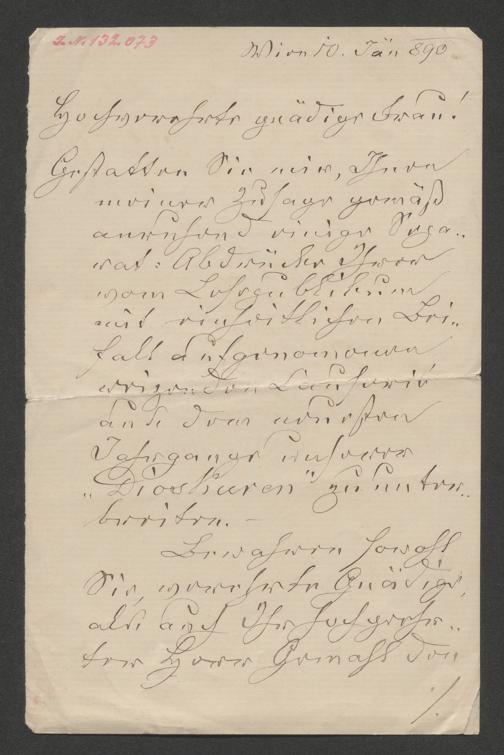 I.N. 132.073
Wien 10. Jän 890
Hochverehrte gnädige Frau!
Gestatten Sie mir, Ihnen
meiner Zusage gemäß
anruhend einige Sepa-
rat: Abdrücke Ihrer
vom Lesepublikum
mit einheitlichen Bei-
fall aufgenommenen
reizenden Causerie
aus dem neuesten
Jahrgange unserer
„Dioskuren“ zu unter-
breiten. –
Bewahren sowohl
Sie, verehrte Gnädige,
als auch Ihr hochgeehr-
ter Herr Gemahl den
./.